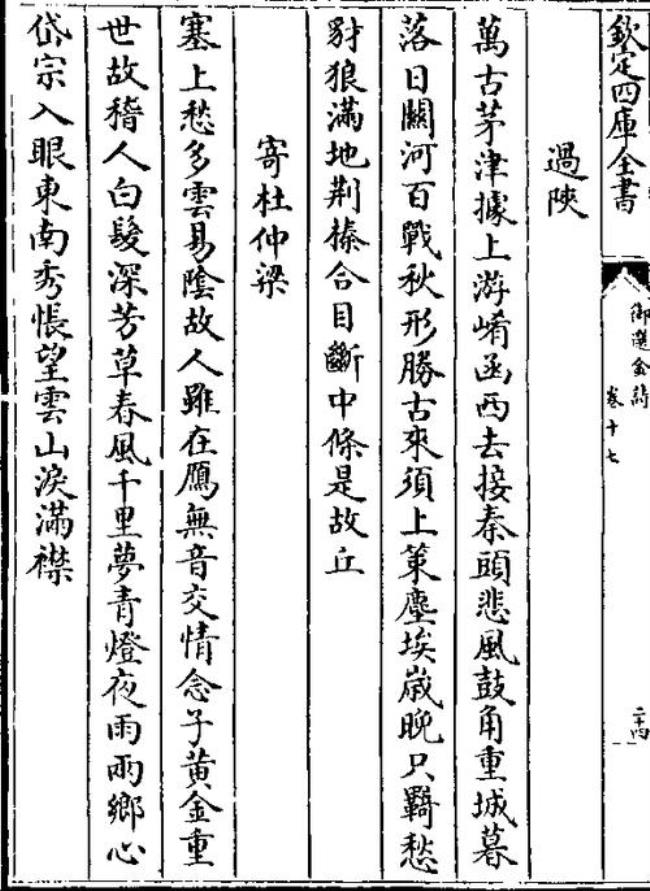 欽定四庫全書
御選金詩
卷十七
二十四
過陜
萬古茅津據上游崤函西去接秦頭悲風鼓角重城暮
落日關河百戰秋形勝古來須上策塵埃歲晚只羇愁
豺狼滿地荆榛合目斷中條是故丘
寄杜仲梁
塞上愁多雲易陰故人雖在鴈無音交情念子黄金重
世故稽人白髮深芳草春風千里夢青燈夜雨兩鄉心
岱宗入眼東南秀悵望雲山淚滿襟